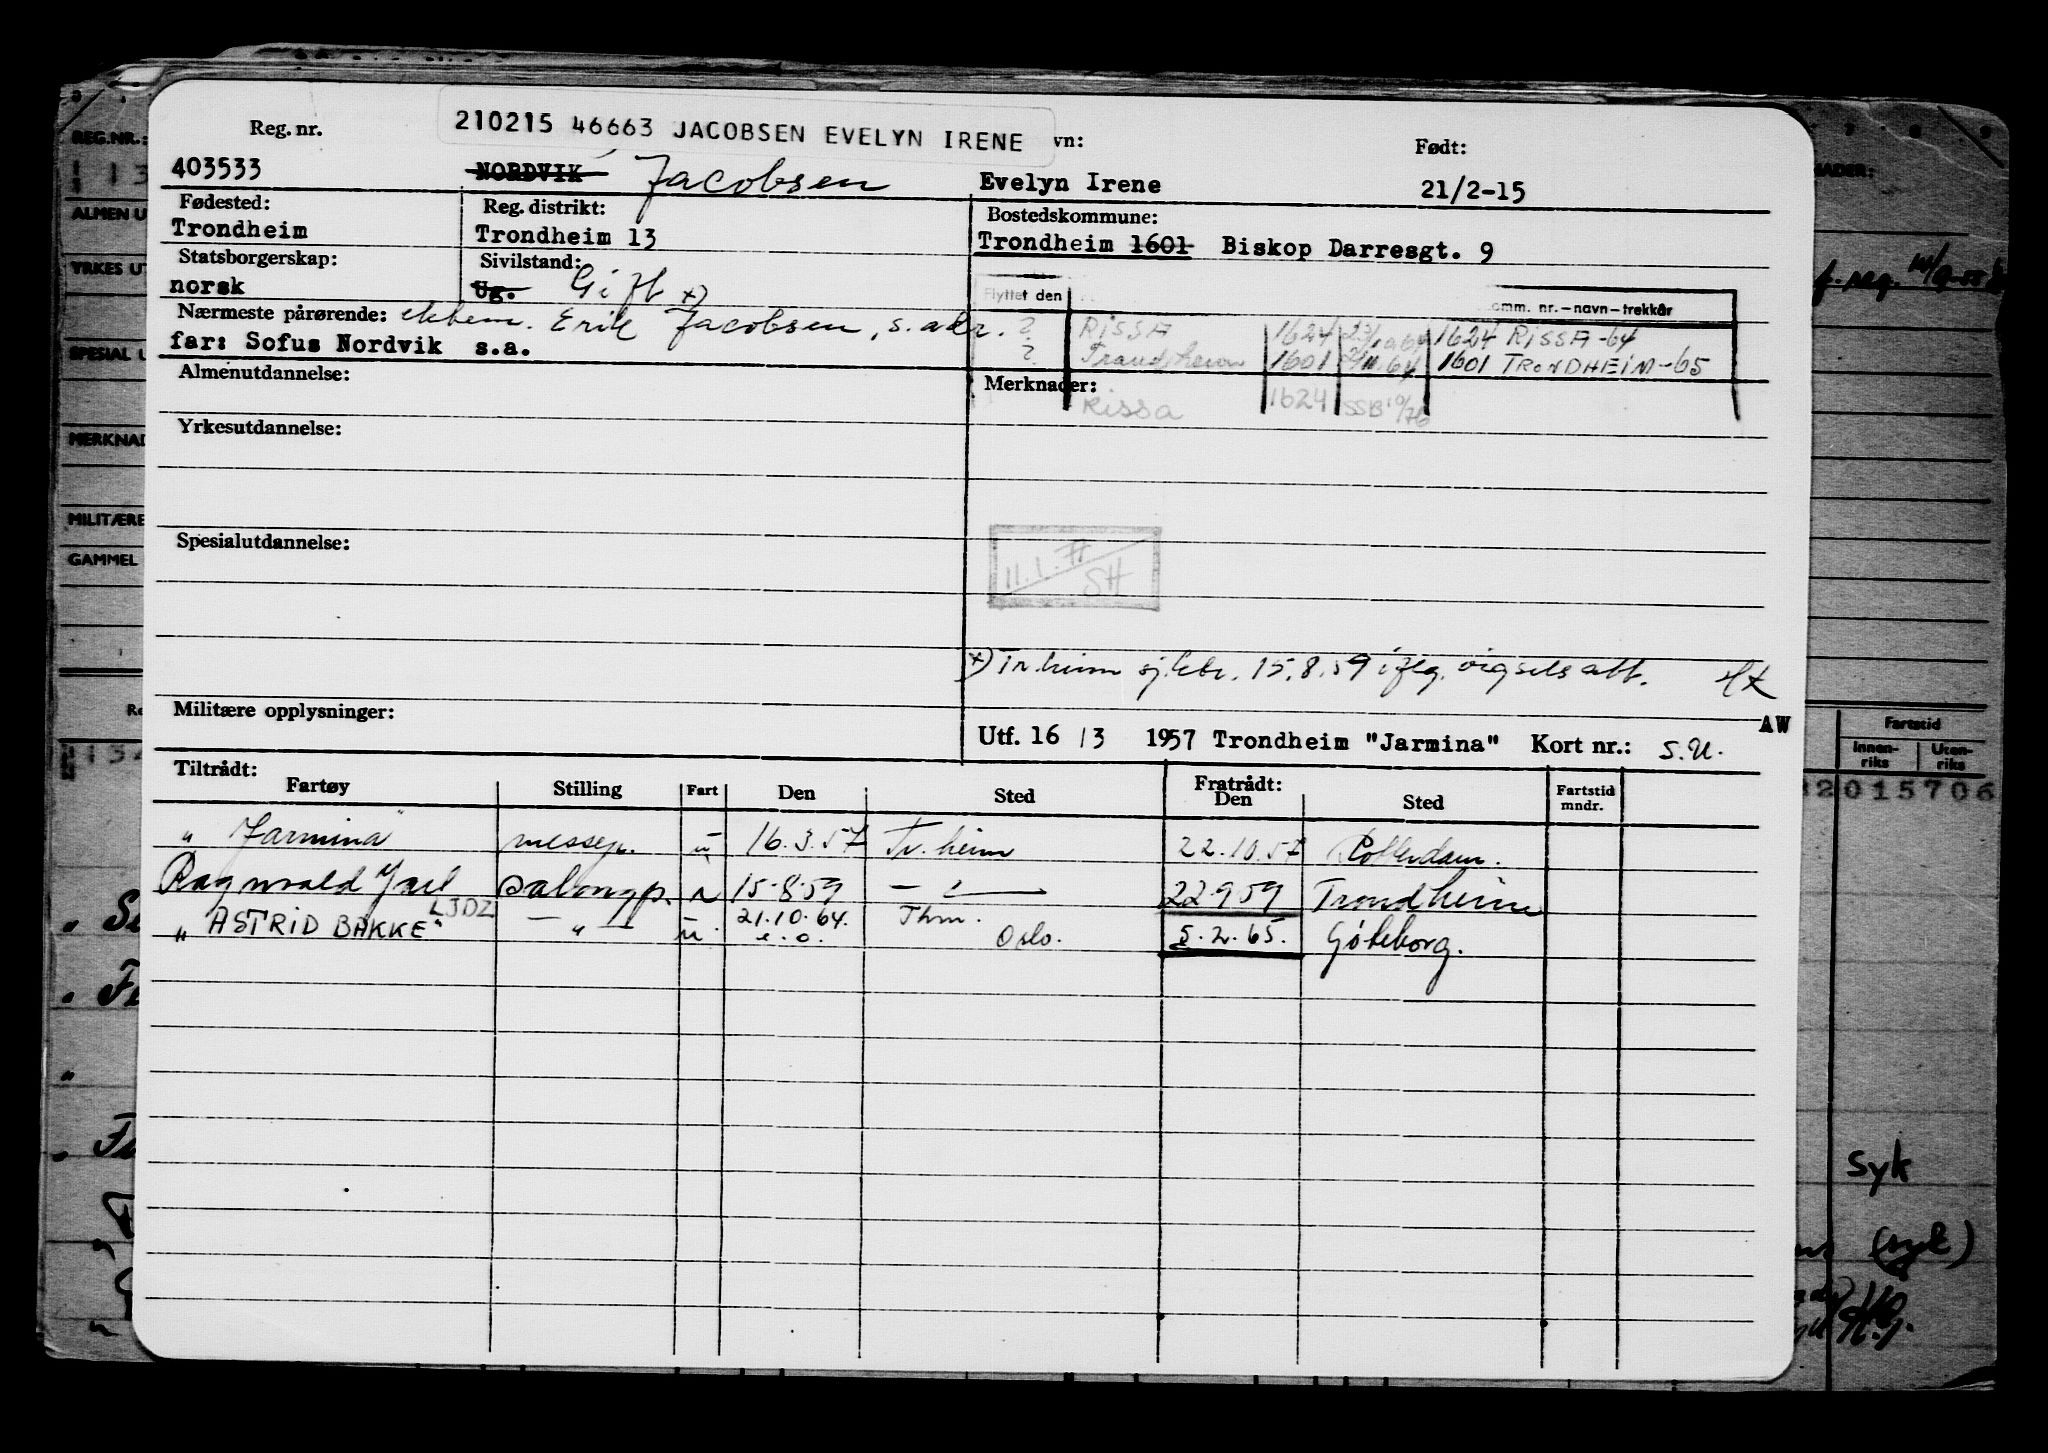 210215 46663 JACOBSEN EVELYN IRENE
Reg. nr. vn: Født:
403533 NORDVIK Jacobsen Evelyn Irene 21/2-15
Fødested: Reg. distrikt: Bostedskommune:
Trondheim Trondheim 13 Trondheim 1601 Biskop Darresgt. 9
Statsborgerskap: Sivilstand:
norsk Ug. Gift x)
Flyttet den omm. nr.–navn–trekkår
Nærmeste pårørende: ektem. Erik Jacobsen, s. adr.
? RISSA 1624 1624 RISSA-64
far: Sofus Nordvik s.a.
? Trondheim 1601 1601 TRONDHEIM-65
Almenutdannelse: Merknader:
Rissa 1624 SSB 10/76
Yrkesutdannelse:
Spesialutdannelse:
11.1.77
SH
x) Tr.heim 15.8.59 iflg. vigselsatt.
Militære opplysninger:
AW
Utf. 16 / 3 1957 Trondheim "Jarmina" Kort nr.: s.u.
Tiltrådt: Fratrådt:
Fartøy Stilling Fart Den Sted Den Sted Fartstid mndr.
" Jarmina" messep. u 16.3.57 Tr.heim 22.10.57 Rotterdam.
Ragnvald Jarl salongp. n 15-8-59 — " — 22959 Trondheim
LJDZ
" ASTRID BAKKE" — " — u 21.10.64. Thm. 5.2.65. Göteborg.
e.o. Oslo.
REG.NR.:
ALMEN U
YRKES UT
SPESIAL U
MERKNAD
MILITÆRE
GAMMEL
Fartstid
Innen-riks Uten-riks
2015706
syk
(syk)